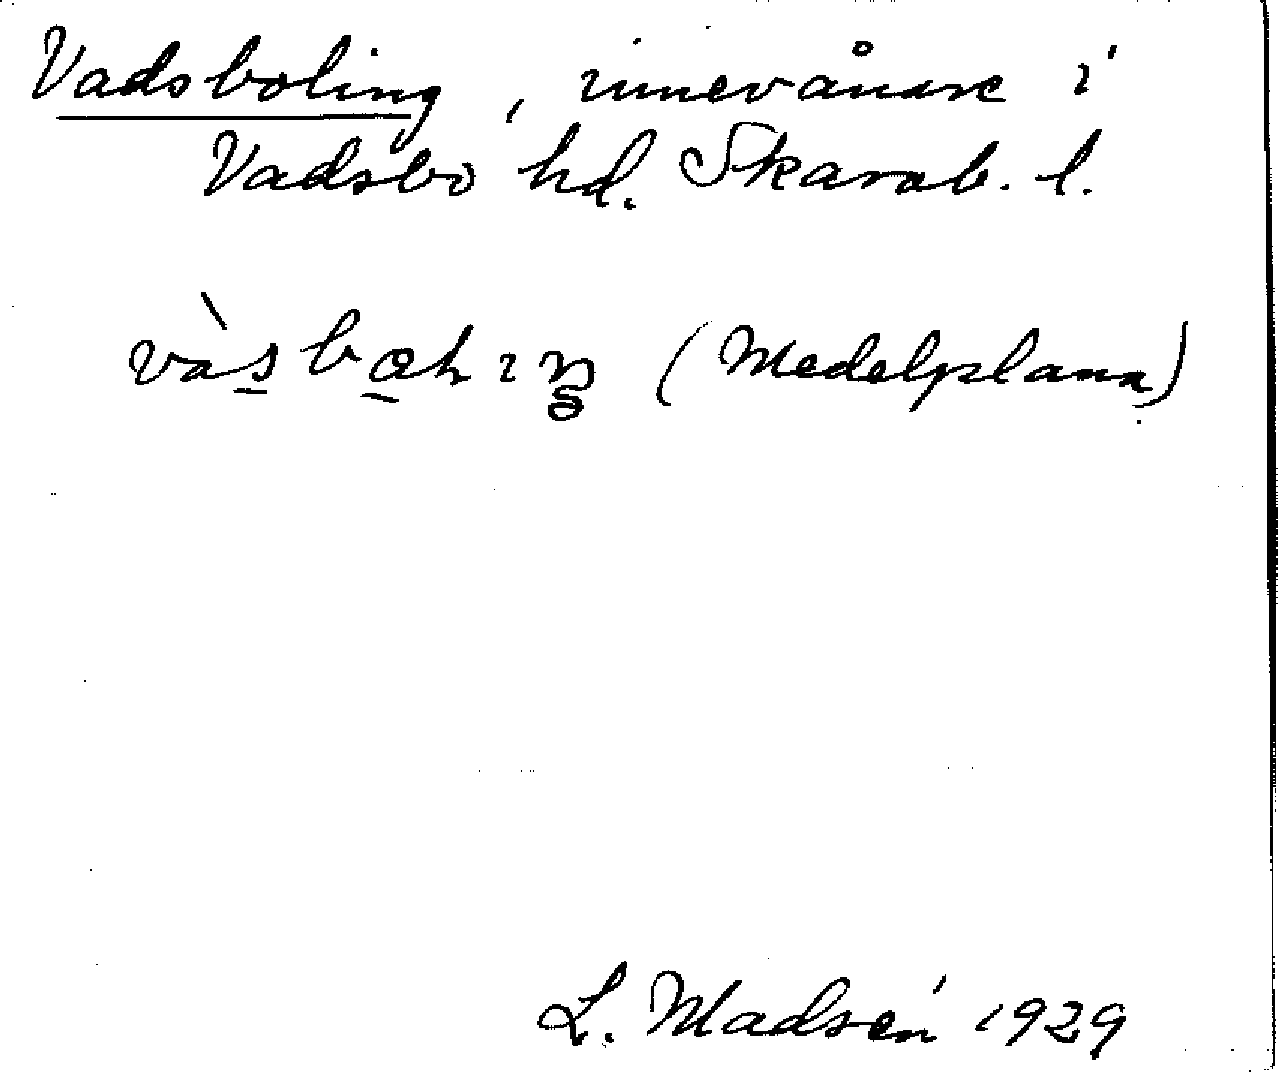 Vadsboling, innevånare i
Vadsbo hd. Skarab. l.
(Medelplana)
L. Madsén 1929